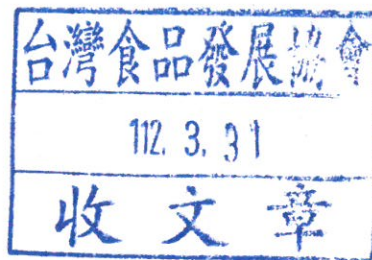 台灣食品發展協會
112. 3. 31
收文章